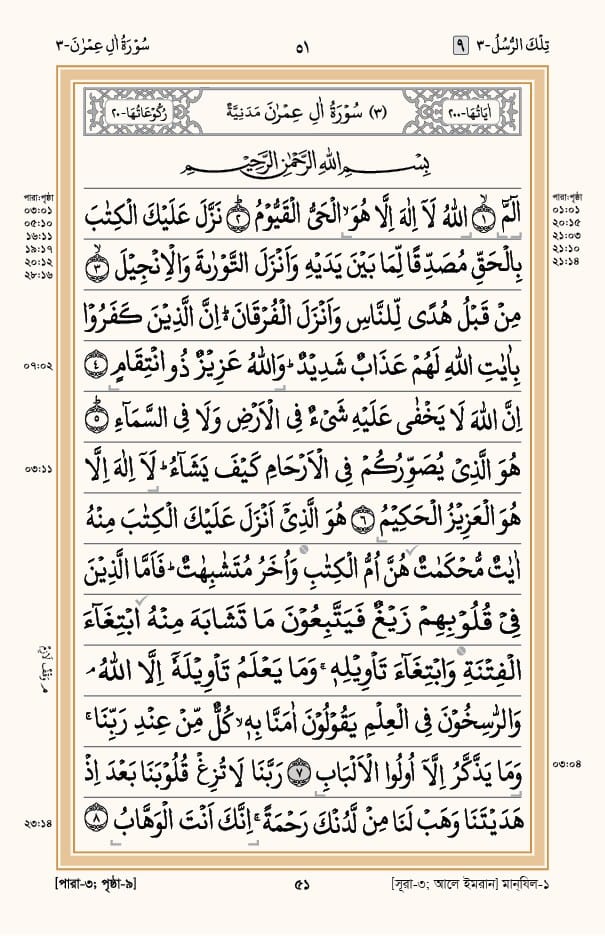 تِلْكَ الرُّسُلُ-٣ ٩ ٥١ سُوْرَةُ اٰلِ عِمْرٰنَ-٣
اٰيَاتُهَا-٢٠٠ (٣) سُوْرَةُ اٰلِ عِمْرٰنَ مَدَنِيَّةٌ رُكُوْعَاتُهَا-٢٠
بِسْمِ اللّٰهِ الرَّحْمٰنِ الرَّحِيْمِ
الٓمّٓ ۙ﴿١﴾ اللّٰهُ لَآ اِلٰهَ اِلَّا هُوَ ۙ الْحَىُّ الْقَيُّوْمُ ؕ﴿٢﴾ نَزَّلَ عَلَيْكَ الْكِتٰبَ
بِالْحَقِّ مُصَدِّقًا لِّمَا بَيْنَ يَدَيْهِ وَاَنْزَلَ التَّوْرٰىةَ وَالْاِنْجِيْلَ ۙ﴿٣﴾
مِنْ قَبْلُ هُدًى لِّلنَّاسِ وَاَنْزَلَ الْفُرْقَانَ ؕ اِنَّ الَّذِيْنَ كَفَرُوْا
بِاٰيٰتِ اللّٰهِ لَهُمْ عَذَابٌ شَدِيْدٌ ؕ وَاللّٰهُ عَزِيْزٌ ذُو انْتِقَامٍ ﴿٤﴾
اِنَّ اللّٰهَ لَا يَخْفٰى عَلَيْهِ شَىْءٌ فِى الْاَرْضِ وَلَا فِى السَّمَآءِ ؕ﴿٥﴾
هُوَ الَّذِىْ يُصَوِّرُكُمْ فِى الْاَرْحَامِ كَيْفَ يَشَآءُ ؕ لَآ اِلٰهَ اِلَّا
هُوَ الْعَزِيْزُ الْحَكِيْمُ ﴿٦﴾ هُوَ الَّذِىْۤ اَنْزَلَ عَلَيْكَ الْكِتٰبَ مِنْهُ
اٰيٰتٌ مُّحْكَمٰتٌ هُنَّ اُمُّ الْكِتٰبِ وَاُخَرُ مُتَشٰبِهٰتٌ ؕ فَاَمَّا الَّذِيْنَ
فِىْ قُلُوْبِهِمْ زَيْغٌ فَيَتَّبِعُوْنَ مَا تَشَابَهَ مِنْهُ ابْتِغَآءَ
الْفِتْنَةِ وَابْتِغَآءَ تَاْوِيْلِهٖ ۚ وَمَا يَعْلَمُ تَاْوِيْلَهٗۤ اِلَّا اللّٰهُ ۘ
وَالرّٰسِخُوْنَ فِى الْعِلْمِ يَقُوْلُوْنَ اٰمَنَّا بِهٖ ۙ كُلٌّ مِّنْ عِنْدِ رَبِّنَا ۚ
وَمَا يَذَّكَّرُ اِلَّاۤ اُولُوا الْاَلْبَابِ ﴿٧﴾ رَبَّنَا لَا تُزِغْ قُلُوْبَنَا بَعْدَ اِذْ
هَدَيْتَنَا وَهَبْ لَنَا مِنْ لَّدُنْكَ رَحْمَةً ۚ اِنَّكَ اَنْتَ الْوَهَّابُ ﴿٨﴾
পারা:পৃষ্ঠা
০১:০১
২০:১৫
২১:০৩
২১:১০
২১:১৪
০৩:০৪
পারা:পৃষ্ঠা
০৩:০১
০৫:১০
১৬:১১
১৯:১৭
২০:১২
২৮:১৬
০৭:০২
০৩:১১
২৩:১৪
[পারা-৩; পৃষ্ঠা-৯] ৫১ [সূরা-৩; আলে ইমরান] মান্‌যিল-১